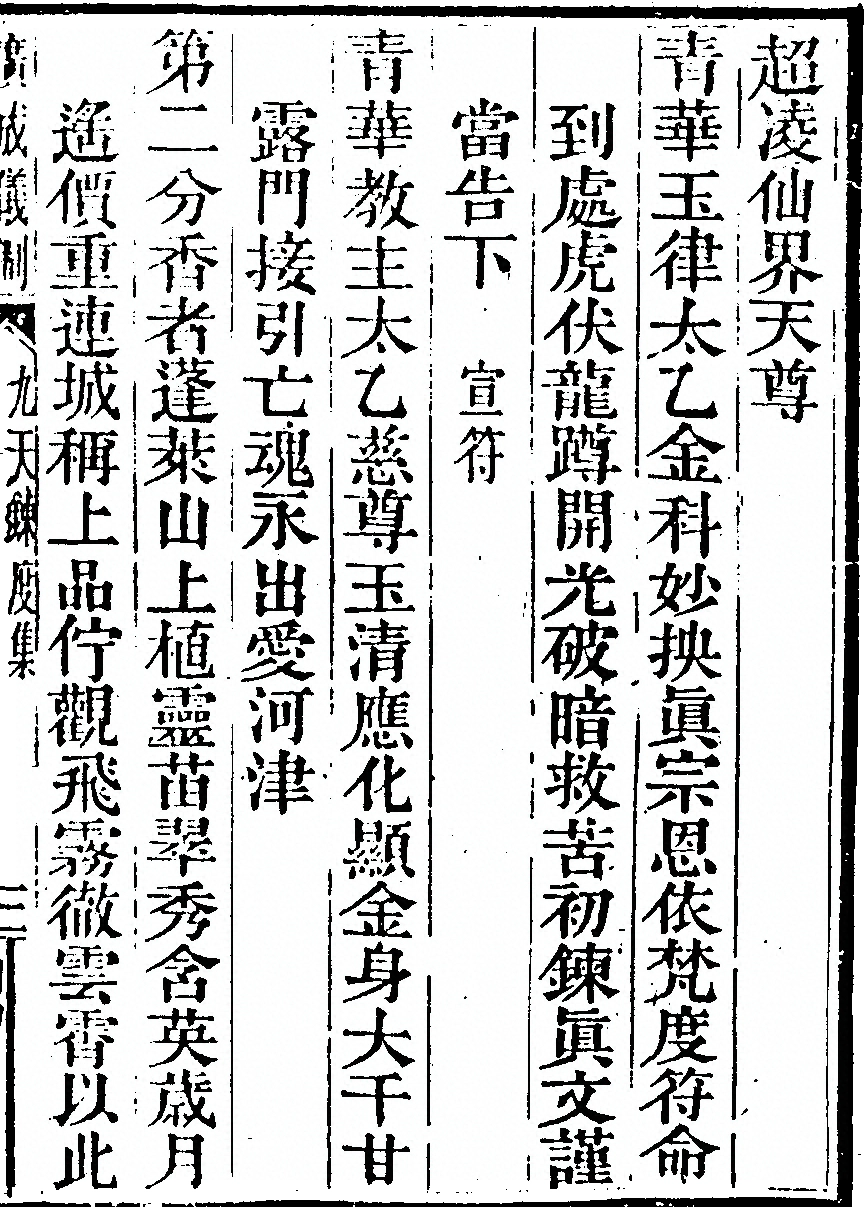 超凌仙界天尊
青華玉律太乙金科妙抰眞宗恩依梵度符命
到處虎伏龍蹲開光破暗救苦初鍊眞文謹
當告下　宣符
青華教主太乙慈尊玉清應化顯金身大千甘
露門接引亡魂永出愛河津
第二分香者蓬萊山上植靈苗翠秀含英歲月
遙價重連城稱上品佇觀飛霧徹雲霄以此
廣成儀制　九天鍊度集　三